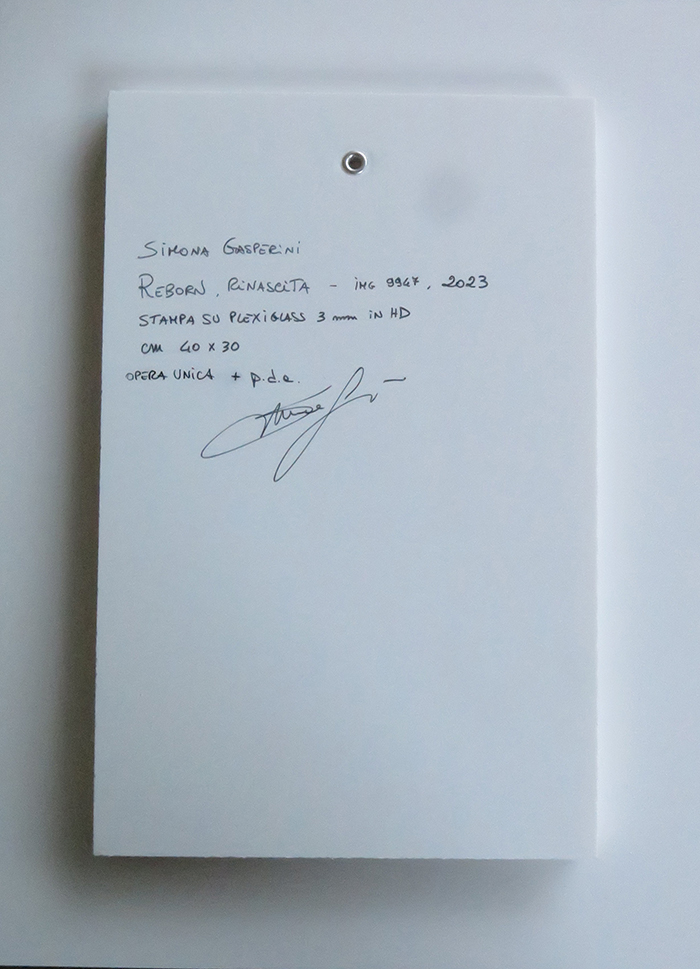 SIMONA GASPERINI
REBORN, RINASCITA - IMG 9947, 2023
STAMPA SU PLEXIGLASS 3 mm IN HD
CM 40 X 30
OPERA UNICA + p.d.a.